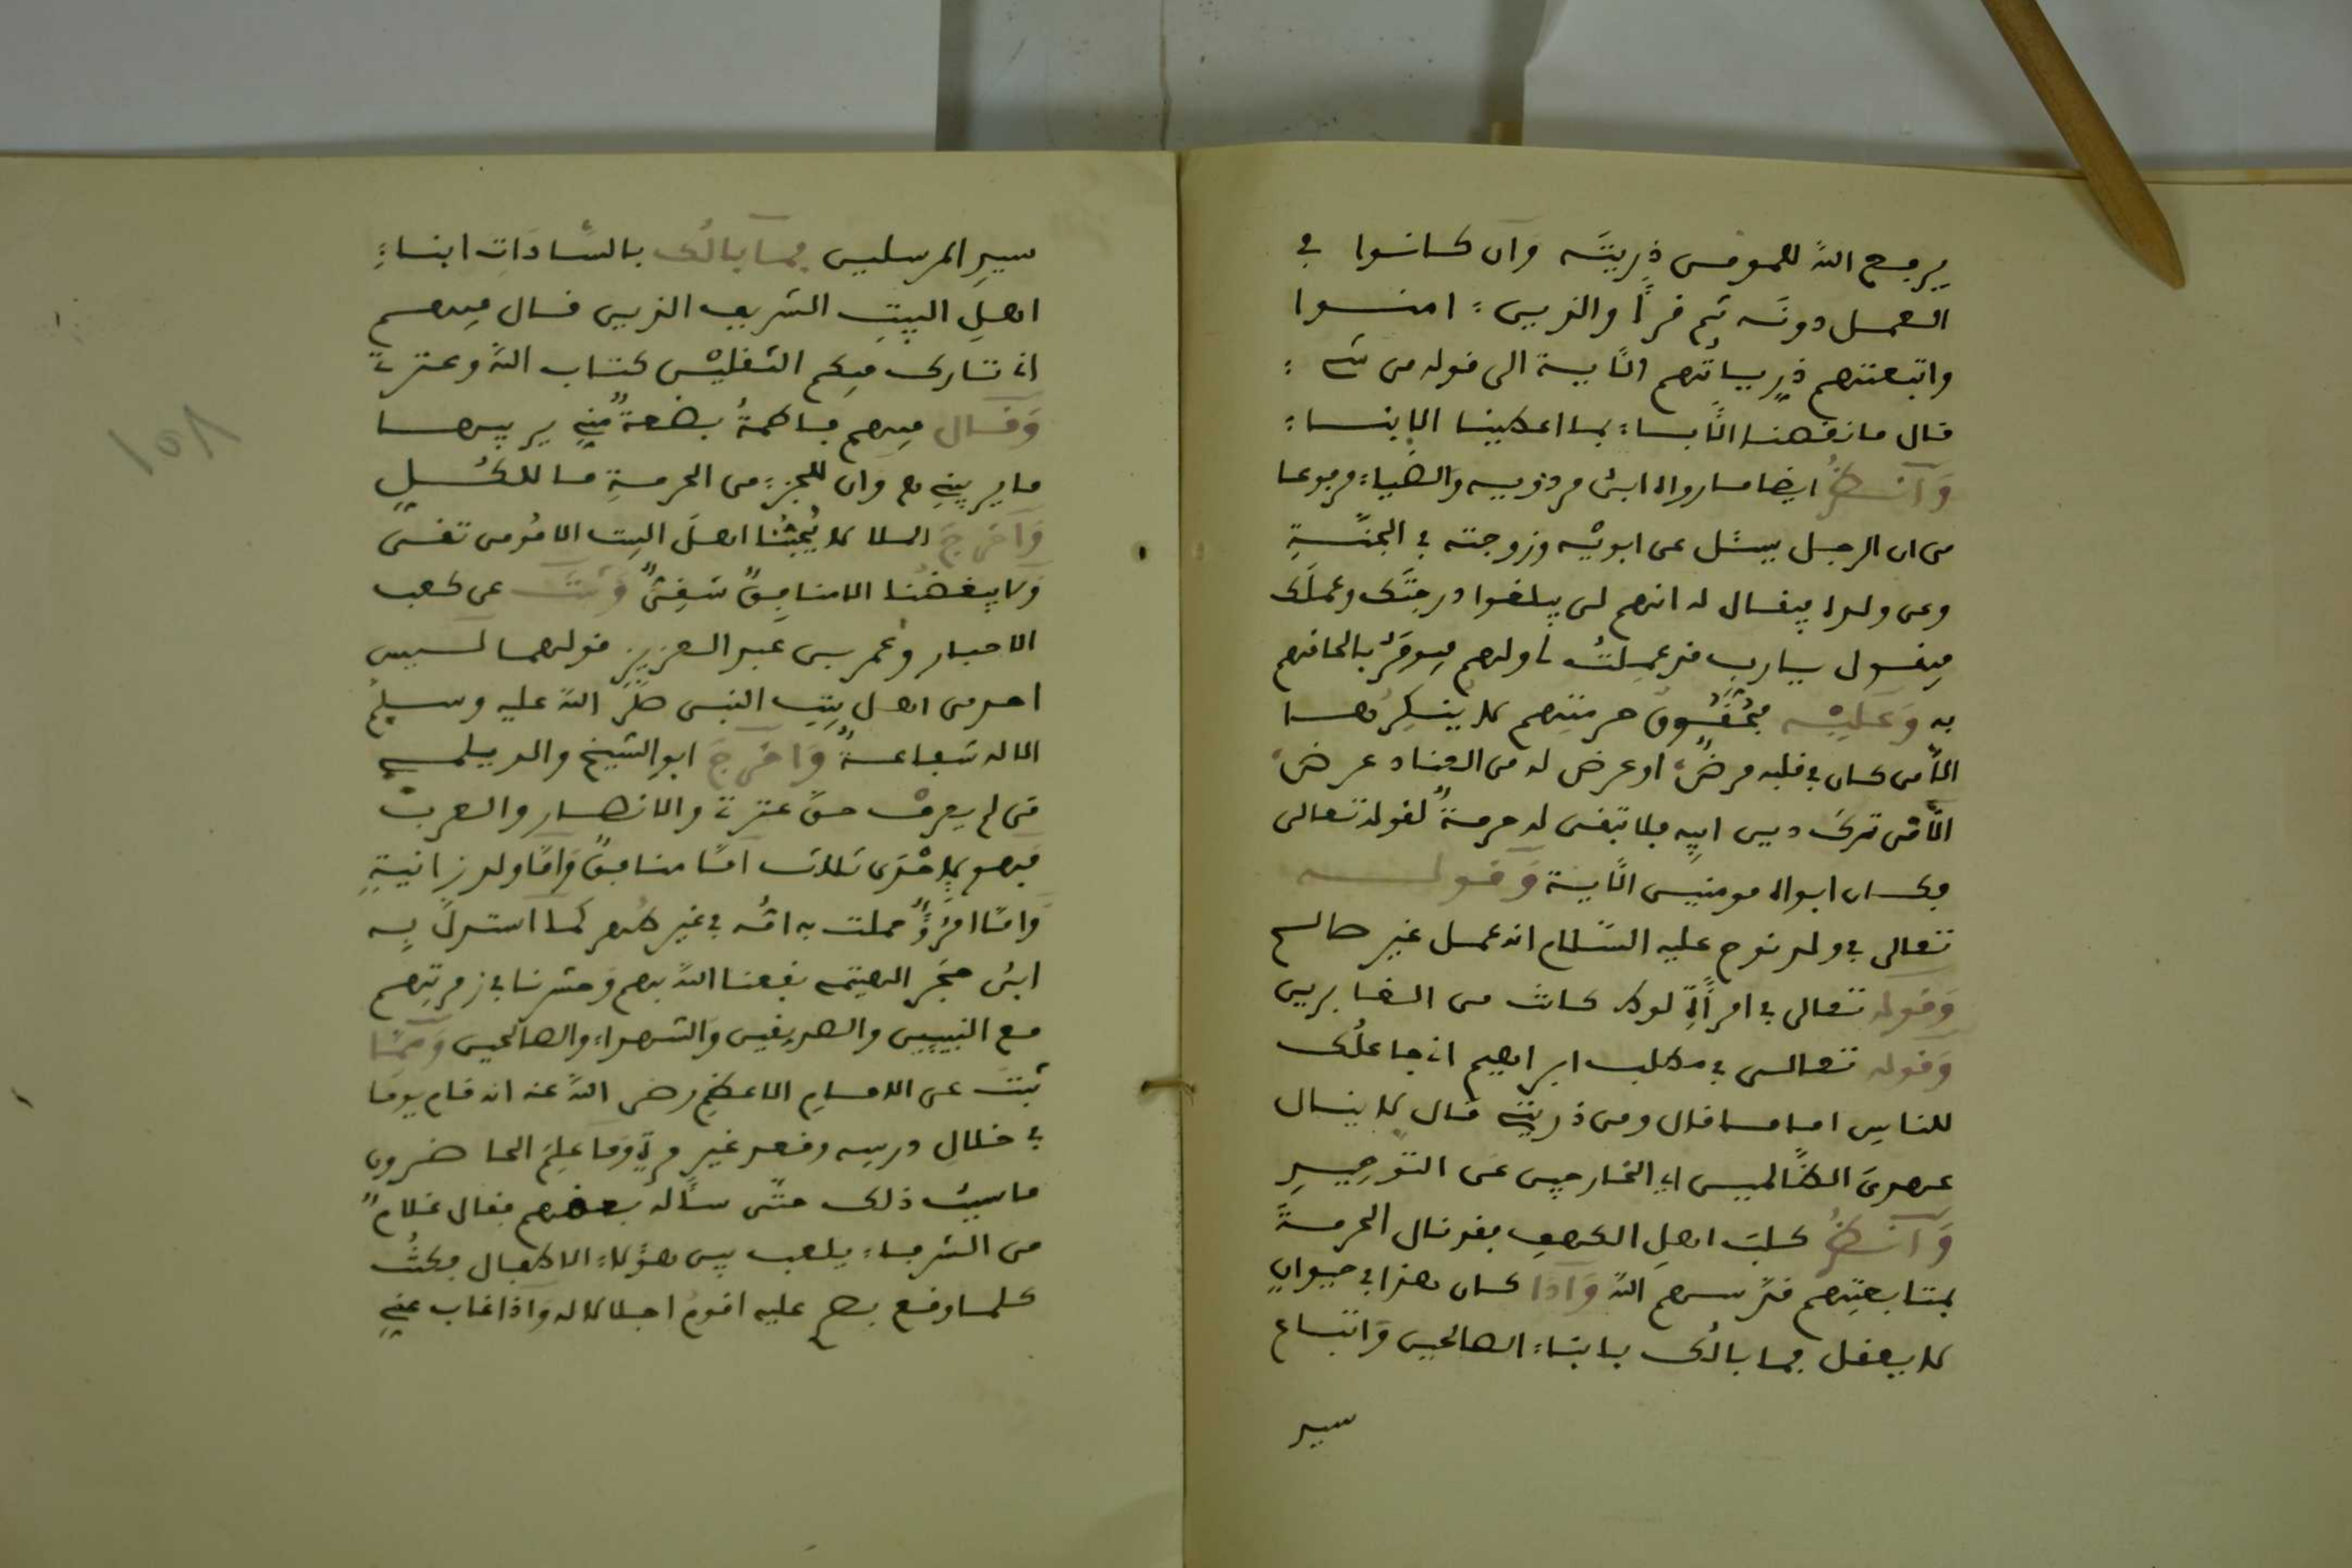 يرفع الله للمومن ذريته وان كانوا في
العمل دونه ثم قرأ والذين ءامنوا
واتبعتهم ذرياتهم الآية الى قوله من شيء
قال ما نقصنا الآباء بما اعطينا الابناء
وانظر ايضا ما رواه ابن مردويه والضياء مرفوعا
من ان الرجل يسئل عن ابويه وزوجته في الجنة
وعن ولده فيقال له انهم لن يبلغوا درجتك وعملك
فيقول يارب قد عملت لي ولهم فيومر بالحاقهم
به وعليه فحقوق حرمتهم لا ينكرها
الا من كان في قلبه مرض او عرض له من العناد عرض
الا من ترك دين ابيه فلا تبقى له حرمة لقوله تعالى
فكان ابواه مومنين الآية وقوله
تعالى في ولد نوح عليه السلام انه عمل غير صالح
وقوله تعالى في امرأة لوط كانت من الغابرين
وقوله تعالى في مطلب ابراهيم اني جاعلك
للناس اماما قال ومن ذريتي قال لا ينال
عهدي الظالمين اي الخارجين عن التوحيد
وانظر كلب اهل الكهف فقد نال الحرمة
بمتابعتهم قدسهم الله واذا كان هذا في حيوان
لا يعقل فما بالك بابناء الصالحين واتباع
سير
سير المرسلين فما بالك بالسادات ابناء
اهل البيت الشريف الذين قال فيهم
اني تارك فيكم الثقلين كتاب الله وعترتي
وقال فيهم فاطمة بضعة مني يريبها
ما يريبني مع وان للجزء من الحرمة ما للكل
واخرج الملا لا يحبنا اهل البيت الا مومن تقي
ولا يبغضنا الا منافق شقي وثبت عن كعب
الاحبار وعمر بن عبد العزيز قولهما ليس
احد من اهل بيت النبي صلى الله عليه وسلم
الا له شفاعة واخرج ابو الشيخ والديلمي
من لم يعرف حق عترتي والانصار والعرب
فهو لاحدى ثلاث اما منافق واما ولد زانية
واما امرؤ حملت به امه في غير طهر كما استدل به
ابن حجر الهيتمي نفعنا الله بهم وحشرنا في زمرتهم
مع النبيين والصديقين والشهداء والصالحين ومما
ثبت عن الامام الاعظم رضي الله عنه انه قام يوما
في خلال درسه وقعد غير مرة وما علم الحاضرون
ما سبب ذلك حتى سأله بعضهم فقال غلام
من الشرفاء يلعب بين هؤلاء الاطفال فكنت
كلما وقع بصري عليه اقوم اجلالا له واذا غاب عني
١٥٨